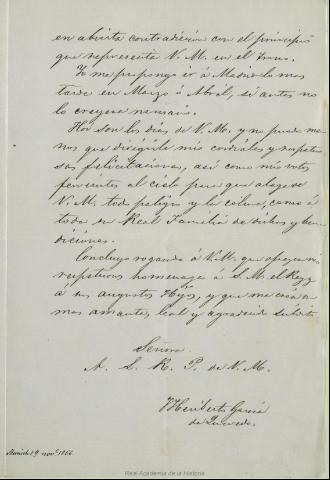 en abierta contradicion con el principio
que representa V. M. en el trono.
Yo me propongo ir á Madrid lo mas
tarde en Marzo ó Abril, si antes no
lo creyera necesario.
Hoy son los dias de V. M. y no puedo me-
nos que dirigirle mis cordiales y respetuo-
sas felicitaciones, así como mis votos
fervientes al cielo para que aleje de
V. M. todo peligro y la colme, como á
toda su Real Familia de dichas y ben-
diciones.
Concluyo rogando á V. M. que ofrezca mis
respetuosos homenages á S. M. el Rey y
á sus augustos Hijos, y que me crea su
mas amante, leal y agradecido súbdito
Señora
A. L. R. P. de V. M.
J. Heriberto García
de Quevedo.
19 nov.e 1866
Real Academia de la Historia